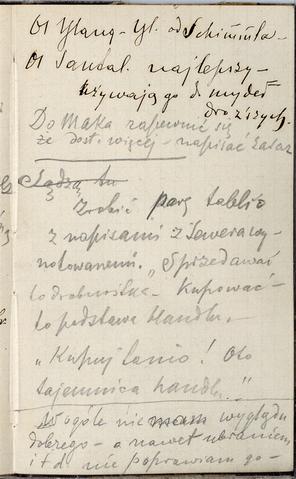 Ol Ylang-Yl. od Schimmla-
Ol Sandal. najlepszy-
używają go do mydeł
droższych.
Do Maka zapewnić się
że dost. więcej - napisać zaraz
Sądzą tu
Zrobić parę tablic
z napisami z Sewera wy-
notowanemi. „Sprzedawać
to drobnostka - Kupować -
to podstawa Handlu.
„Kupuj tanio! Oto
tajemnica handlu."
W ogóle nie mam wyglądu
dobrego - a nawet ubraniem
itd nie poprawiam go -